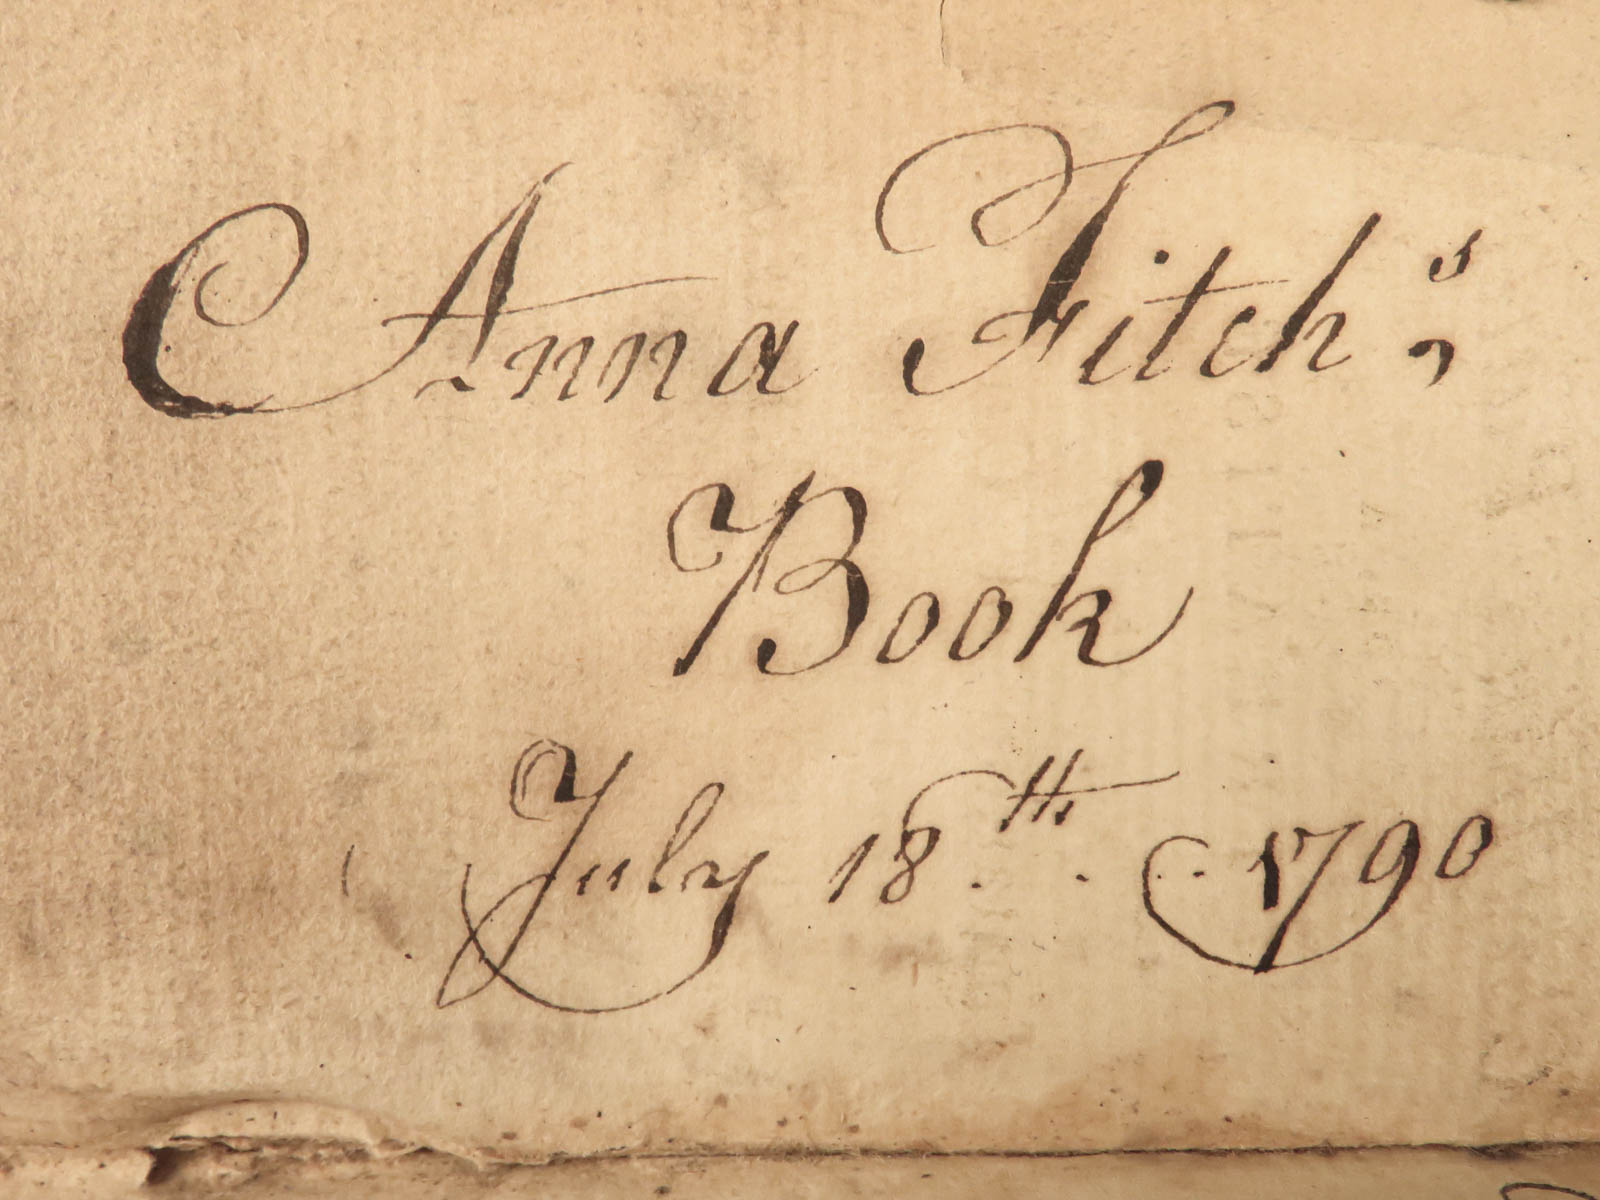 Anna Fitch's
Book
July 18th. . 1790